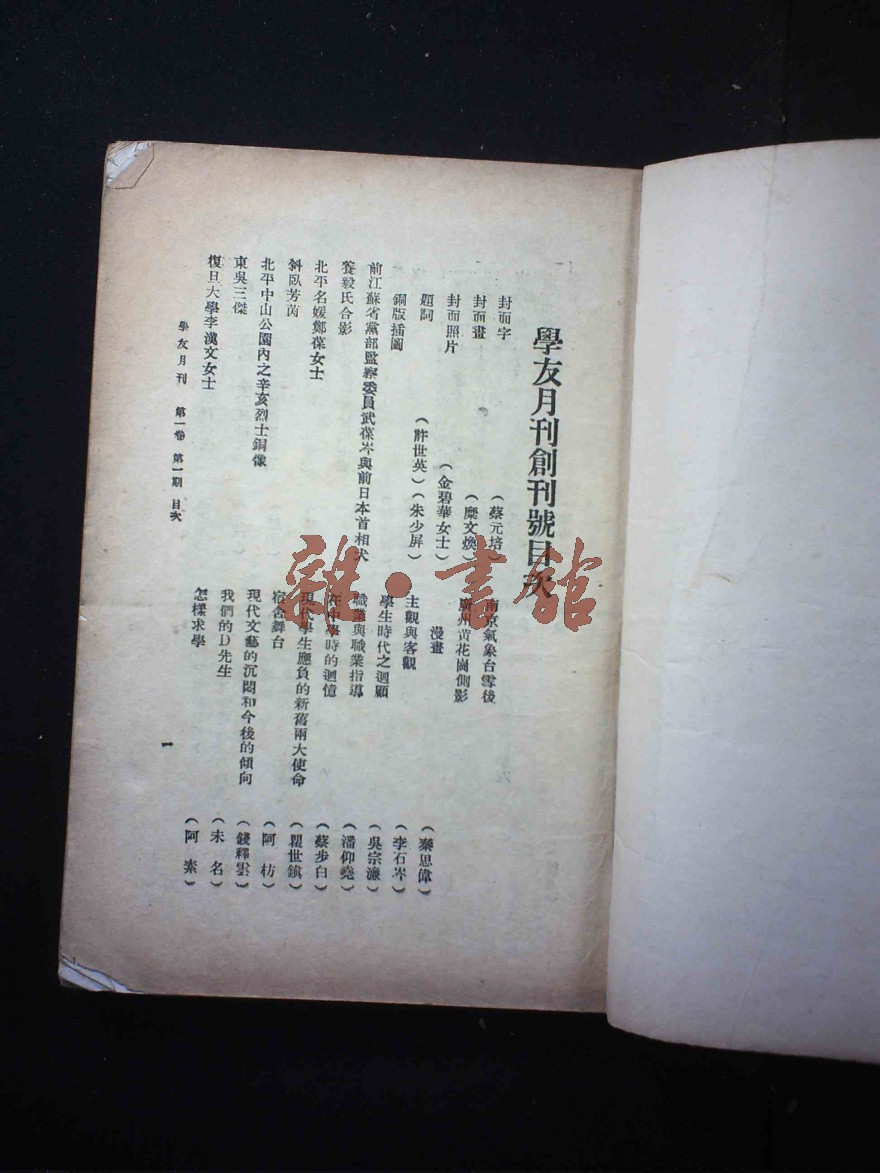 學友月刊創刊號目次
封面字
（蔡元培）
封面畫
（糜文煥）
封面照片
（金碧華女士）
題詞
（許世英）（朱少屏）
銅版插圖
前江蘇省黨部監察委員武葆岑與前日本首相犬
養毅氏合影
北平名媛鄭葆女士
斜臥芳茵
北平中山公園內之辛亥烈士銅像
東吳三傑
復旦大學李漢文女士
南京氣象台雪後
廣州黃花崗側影
漫畫
（秦思偉）
主觀與客觀
（李石岑）
學生時代之迴顧
（吳宗濂）
職業與職業指導
（潘仰堯）
在中學時的迴憶
（蔡步白）
現代學生應負的新舊兩大使命
（瞿世鎮）
宿舍舞台
（阿枋）
現代文藝的沉悶和今後的傾向
（錢釋雲）
我們的D先生
（未名）
怎樣求學
（阿素）
學友月刊 第一卷 第一期 目次
一
雜·書館